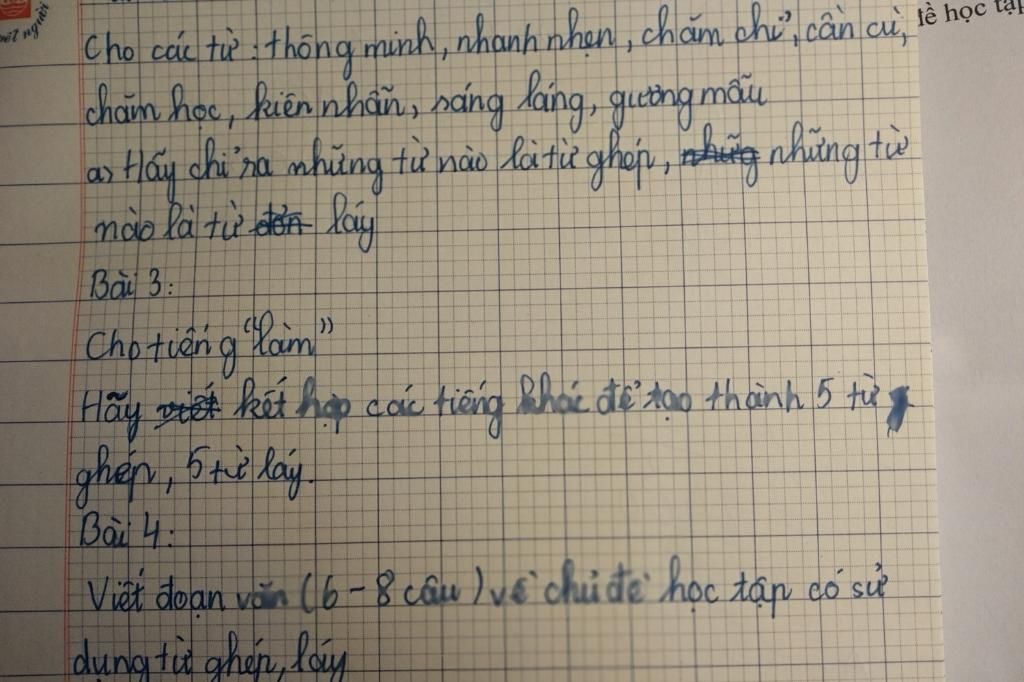 ết người
ề học tập
Cho các từ: thông minh, nhanh nhẹn, chăm chỉ, cần cù,
chăm học, kiên nhẫn, sáng láng, gương mẫu
a) Hãy chỉ ra những từ nào là từ ghép, những những từ
nào là từ đơn láy
Bài 3:
Cho tiếng "làm"
Hãy viết kết hợp các tiếng khác để tạo thành 5 từ
ghép, 5 từ láy.
Bài 4:
Viết đoạn văn (6-8 câu) về chủ đề học tập có sử
dụng từ ghép, láy